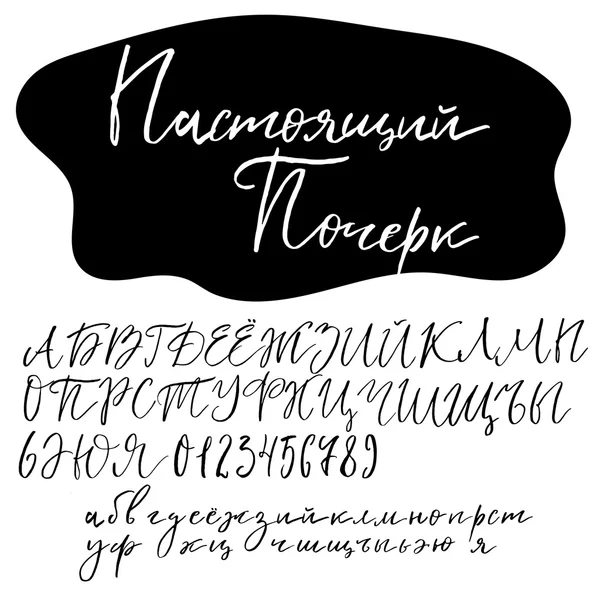 Настоящий
Почерк
АБВГДЕЁЖЗИЙКЛМН
ОПРСТУФХЦЧШЩЪЫ
ЬЭЮЯ 0123456789
абвгдеёжзийклмнопрст
уф хц чшщъыьэю я